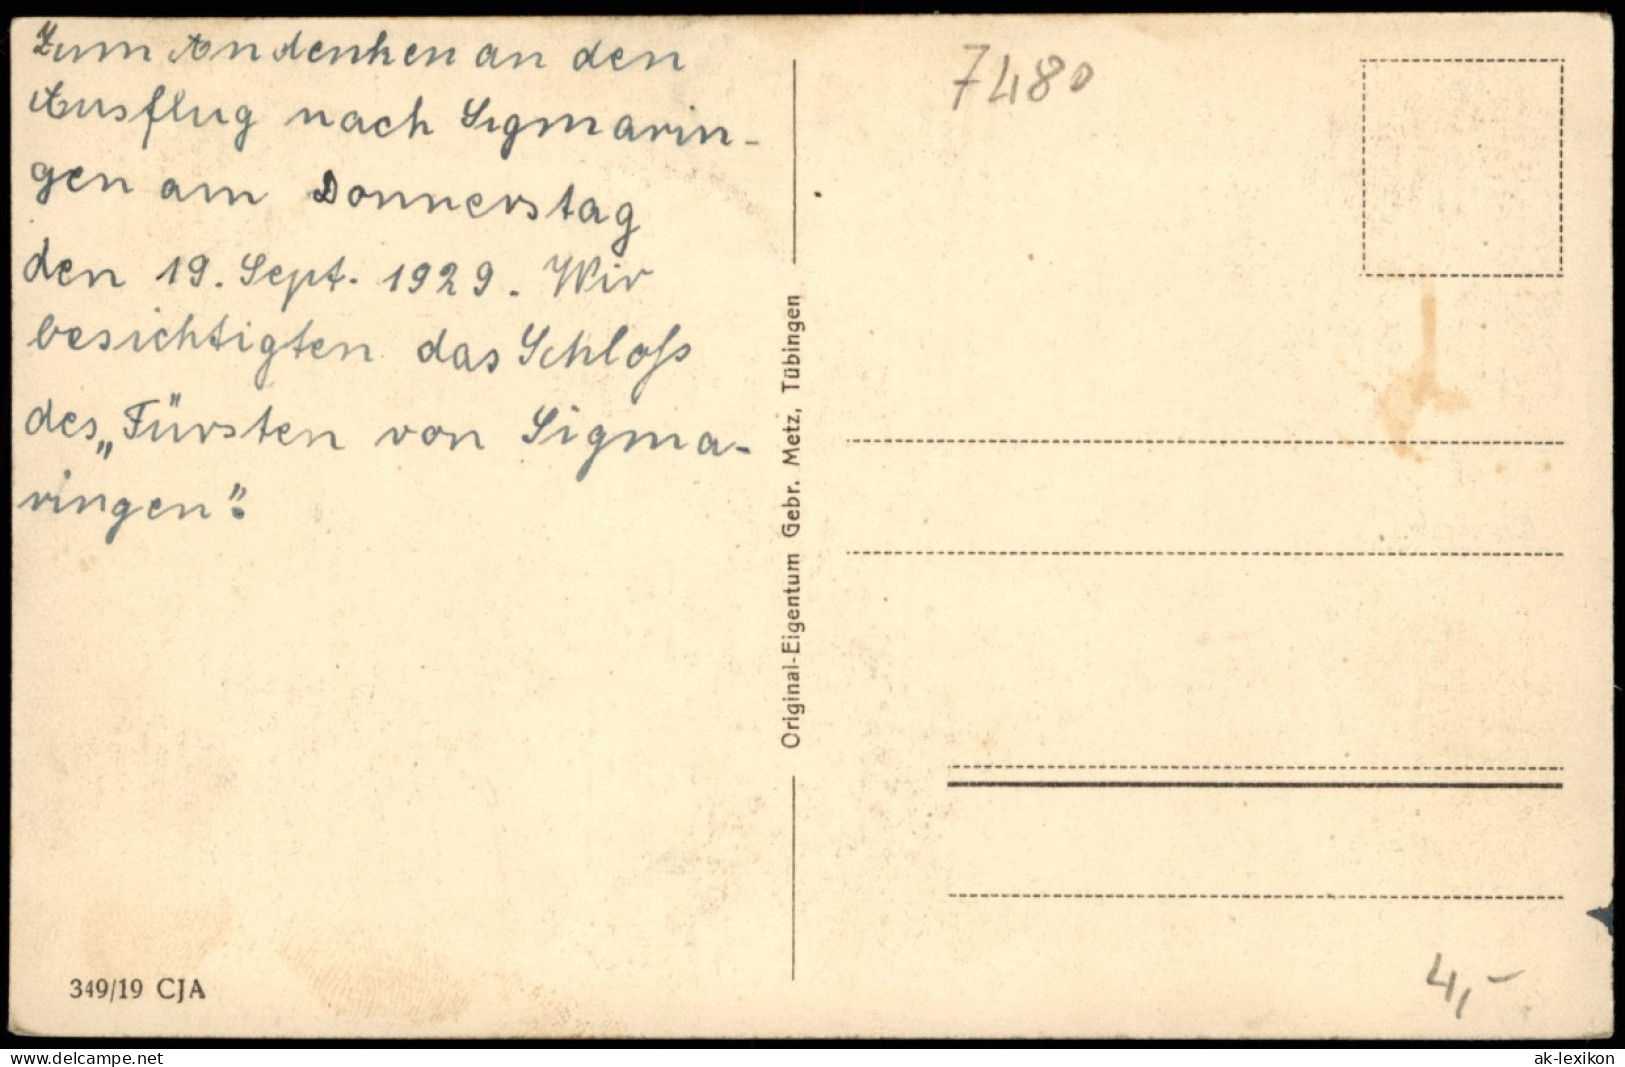 Zum Andenken an den
Ausflug nach Sigmarin-
gen am Donnerstag
den 19. Sept. 1929. Wir
besichtigten das Schloß
des „Fürsten von Sigma-
ringen".
7480
Original-Eigentum Gebr. Metz, Tübingen
349/19 CJA
4,-
delcampe.net
ak-lexikon